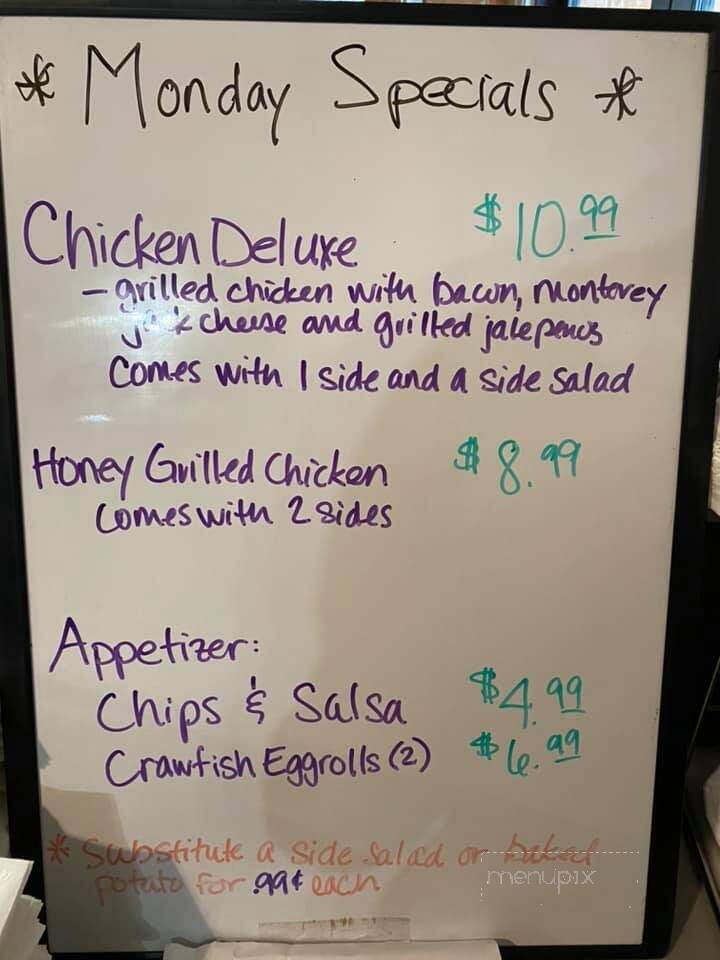 * Monday Specials *
Chicken Deluxe $10.99
- grilled chicken with bacon, monterey
jack cheese and grilled jalepenos
Comes with 1 side and a side salad
Honey Grilled Chicken $8.99
Comes with 2 sides
Appetizer:
Chips & Salsa $4.99
Crawfish Eggrolls (2) $6.99
* Substitute a side salad or baked
potato for .99¢ each
menupix